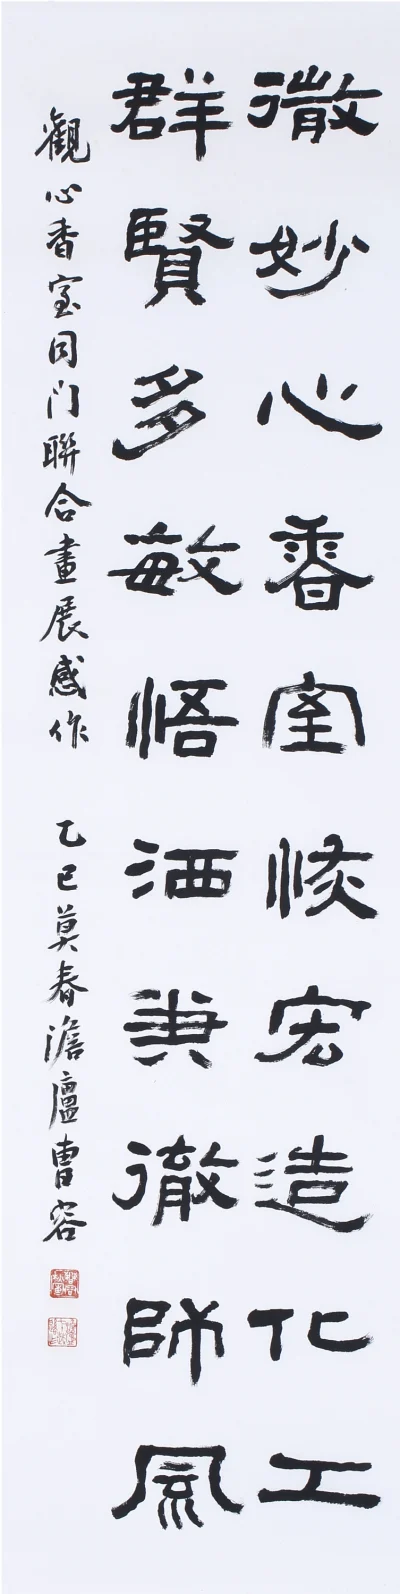 微妙心香室恢宏造化工
群賢多敏悟洒兼徹師風
觀心香室同门聯合畫展感作 乙巳莫春澹廬曹容